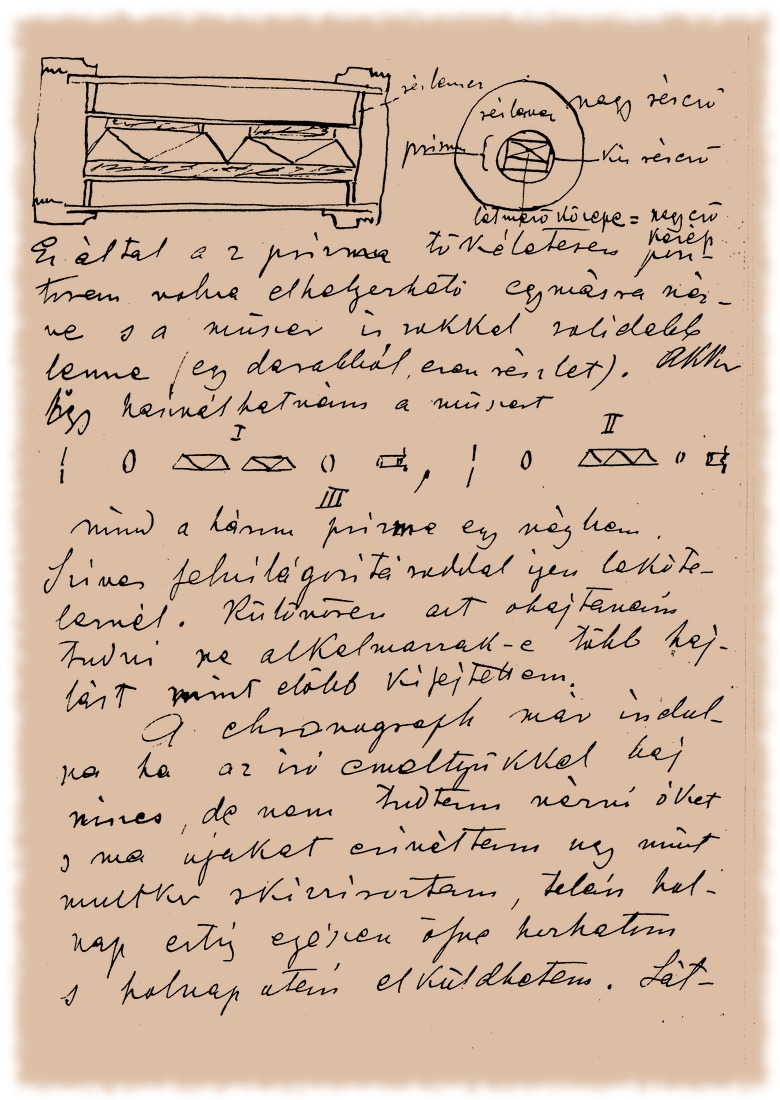 réz lemez
nagy rézcső
réz lemez
prizma
kis rézcső
látmező közepe = nagy cső
közép
Ez által a 2 prizma tökéletesen pozi-
tosan volna elhelyezhető egymásra néz-
ve s a műszer is sokkal solidebb
lenne (egy darabból, ezen részlet). Akkor
így használhatnám a műszert
I
II
III
mind a három prizma egy vágban.
Szives felvilágositásoddal igen leköte-
leznél. Különösen azt ohajtanám
tudni ne alkalmazzak-e több haj-
lást mint előbb kifejtettem.
A chronograph már indul-
na ha az iró emeltyűkkel baj
nincs, de nem tudtam várni őket
s ma ujakat csináltam ugy mint
multkor skizziroztam, talán hol-
nap estig egészen öfve hozhatom
s holnap után elküldhetem. Lát-